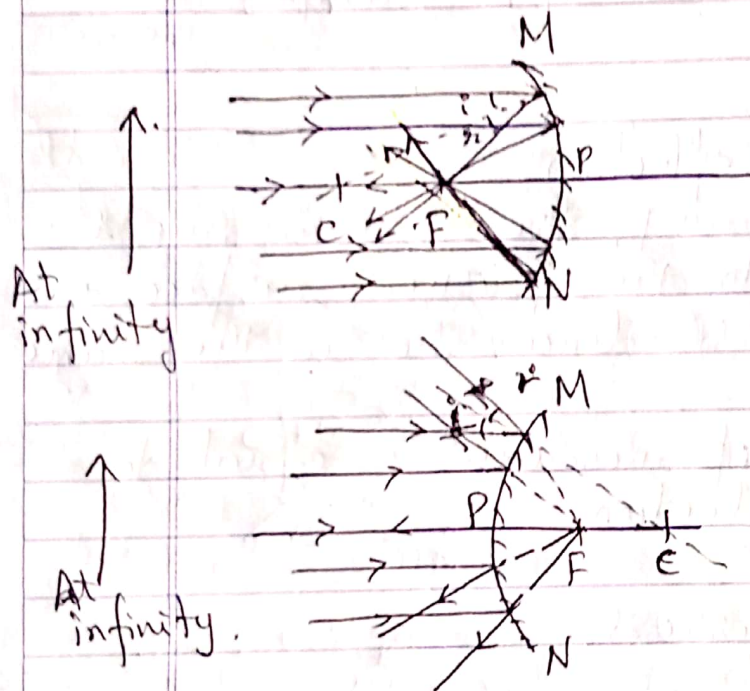 M
i
P
C
F
N
At
infinity
r
M
i
P
F
C
N
At
infinity.